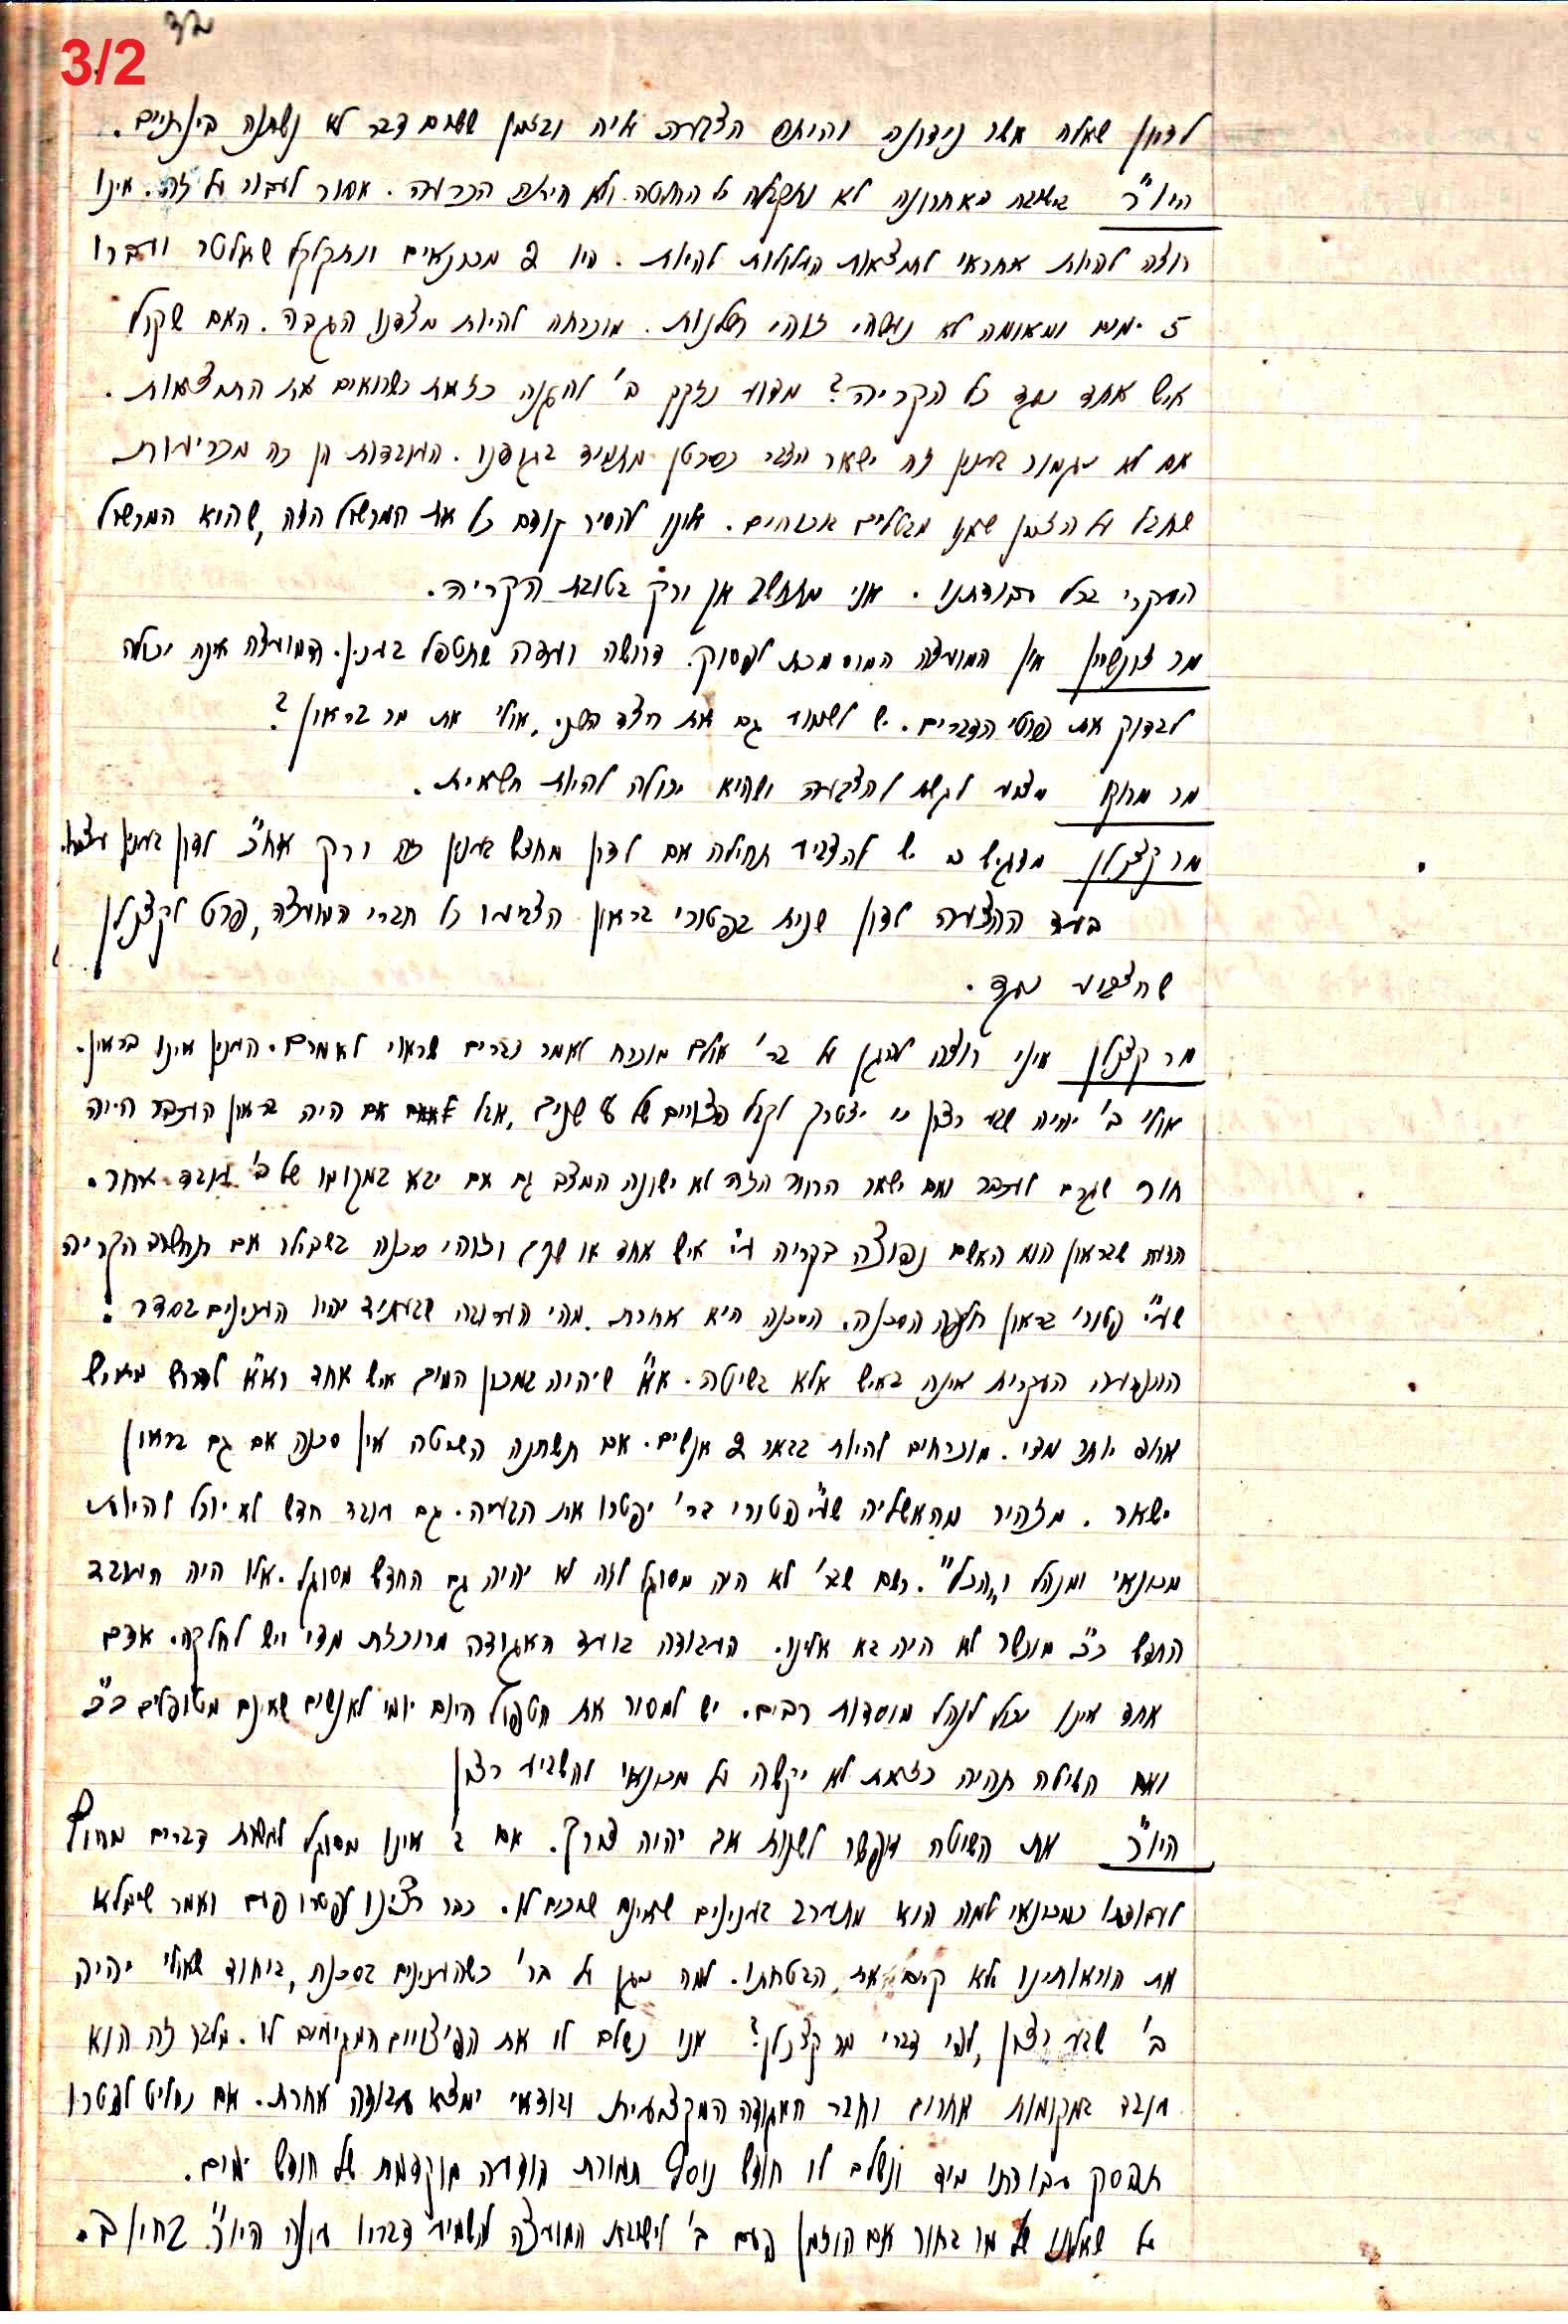 3/2
לדיון שאלה אשר נידונה והיתה הצבעה עליה ובזמן ששום דבר לא נשתנה בינתיים.
היו"ר בישיבה האחרונה לא נתקבלה כל החלטה ולא היתה הכרעה. אסור לעבור על זה. אינו
רוצה להיות אחראי לתוצאות העלולות להיות. היו 2 מכונאים ונתקלקל שאלטר ועברו
5 ימים ומאומה לא נעשה זוהי רשלנות. מוכרחה להיות מצדנו הגבה. האם שקול
איש אחד נגד כל הקריה? מדוע נזקק ב' להגנה כזאת כשרואים את התוצאות.
אם לא נגמור בענין זה ישאר הדבר כסרטן מתמיד בגופנו. העובדות הן כה מכריעות
שחבל על הזמן שאנו מבטלים בוכוחים. עלינו להסיר קודם כל את המכשול הזה, שהוא המכשול
העקרי בכל עבודתנו. אני מתחשב אך ורק בטובת הקריה.
מר זונשיין אין המועצה המוסמכת לפסוק. דרושה ועדה שתטפל בענין. המועצה אינה יכולה
לבדוק את פרטי הדברים. יש לשמוע גם את הצד השני, אולי את מר בראון?
מר מרוקו מציע לגשת להצבעה ושהיא יכולה להיות חשאית.
מר קצנלן מדגיש כי יש להצביע תחילה אם לדון מחדש בענין זה ורק אח"כ לדון בענין עצמו.
בעד ההצעה לדון שנית בפטורי בראון הצביעו כל חברי המועצה, פרט לקצנלן
שהצביע נגד.
מר קצנלן איני רוצה להגן על בר' אולם מוכרח לאמר דברים שראוי לאמרם. הענין אינו בראון.
אולי ב' יהיה שבע רצון כי יצטרך לקבל פצויים של 8 שנים, אבל אם היה בראון העובד היה
חור שגרם לדבר ואם ישאר החור הזה לא ישונה המצב גם אם יבא במקומו של ב' עובד אחר.
הדעה שבראון הוא האשם נפוצה בקריה ע"י איש אחד או שנים וזוהי סכנה בשבילו אם תחשוב הקריה
שע"י פטורי בראון חלפה הסכנה. הסכנה היא אחרת. מהי הערובה שבעתיד יהיו הענינים בסדר?
הונצעה העקרית אינה באיש אלא בשיטה. א"א שיהיה במכון המים איש אחד וא"א לדרוש מאיש
אחד יותר מדי. מוכרחים להיות בבאר 2 אנשים. אם תשתנה השיטה אין סכנה אם גם בראון
ישאר. מזהיר מהאשליה שע"י פטורי בר' יפטרו את הבעיה. גם עובד חדש לא יוכל להיות
מכונאי ומנהל ו"הכל". כשם שבר' לא היה מסוגל לזה לא יהיה גם החדש מסוגל. אלו היה העובד
החדש כ"כ מוכשר לא היה בא אלינו. העבודה בועד האגודה מרוכזת מדי ויש לחלקה. אדם
אחד אינו יכול לנהל מוסדות רבים. יש למסור את הטפול היום יומי לאנשים שאינם מטופלים כ"כ
ואם השיטה תהיה כזאת לא יקשה על מכונאי להשביע רצון
היו"ר את השיטה אפשר לשנות אם יהיה צורך. אם ב' אינו מסוגל לעשות דברים מחוץ
לעבודתו כמכונאי למה הוא מתערב בענינים שאינם שייכים לו. כבר רצינו לפטרו פעם ואמר שימלא
את הוראותינו ולא קיים את הבטחתו. למה מגן על בר' כשהענינים בסכנה, ביחוד שאולי יהיה
ב' שבע רצון, לפי דברי מר קצנלן? אנו נשלם לו את הפיצויים המגיעים לו. מלבד זה הוא
עובד במקומות אחרים וחבר האגודה המקצועית ובודאי ימצא עבודה אחרת. אם נחליט לפטרו
תפסק עבודתו מיד ונשלם לו חודש נוסף תמורת הודעה מוקדמת של חודש ימים.
על שאלתו של מר בחור אם הוזמן פעם ב' לישיבת המועצה להשמיע דבריו עונה היו"ר בחיוב.